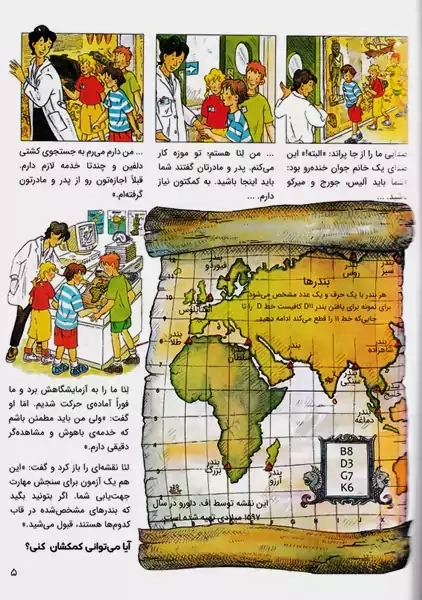 صدایی ما را از جا پراند: «البته!» این
صدای یک خانم جوان خنده‌رو بود:
«شما باید آلیس، جورج و میرکو
باشید. ...
... من لِنا هستم؛ تو موزه کار
می‌کنم. پدر و مادرتان گفتند شما
باید اینجا باشید. به کمکتون نیاز
دارم. ...
... من دارم می‌رم به جستجوی کشتی
دلفین و چندتا خدمه لازم دارم.
قبلاً اجازه‌تون رو از پدر و مادرتون
گرفته‌ام.»
لِنا ما را به آزمایشگاهش برد و ما
فوراً آماده‌ی حرکت شدیم. امّا او
گفت: «ولی من باید مطمئن باشم
که خدمه‌ی باهوش و مشاهده‌گر
دقیقی دارم.»
لنا نقشه‌ای را باز کرد و گفت: «این
هم یک آزمون برای سنجش مهارت
جهت‌یابی شما. اگر بتونید بگید
که بندرهای مشخص‌شده در قاب
کدوم‌ها هستند، قبول می‌شید.»
آیا می‌توانی کمکشان کنی؟
بندرها
هر بندر با یک حرف و یک عدد مشخص می‌شود.
برای نمونه برای یافتن بندر D11 کافیست خط D را تا
جایی‌که خط 11 را قطع می‌کند ادامه دهید.
بندر
سبز
بندر
روس
بندر
فیوردو
بندر
طلا
بندر
سلطان
بندر
شاهزاده
بندر
سنگی
بندر
خلیج
بندر
دماغه
بندر
بزرگ
بندر
آرزو
B8
D3
G7
K6
این نقشه توسط اف. داورو در سال
۱۵۹۷ میلادی تهیه شده است
۵